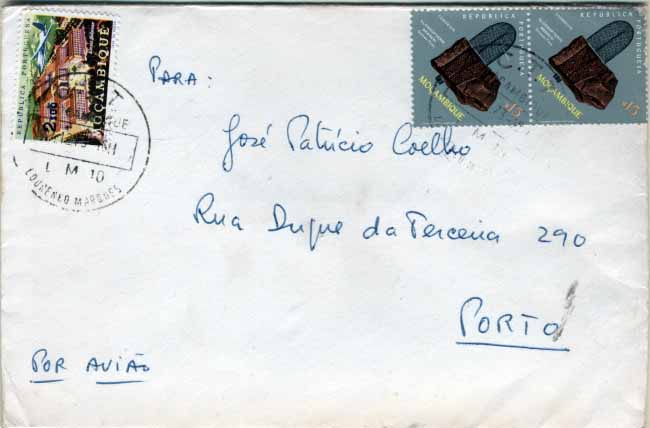 REPÚBLICA PORTUGUESA
2$00
MOÇAMBIQUE
L M 10
LOURENÇO MARQUES
REPÚBLICA PORTUGUESA
MOÇAMBIQUE
$15
REPÚBLICA PORTUGUESA
MOÇAMBIQUE
$15
PARA:
José Patrício Coelho
Rua Duque da Terceira 290
PORTO
POR AVIÃO